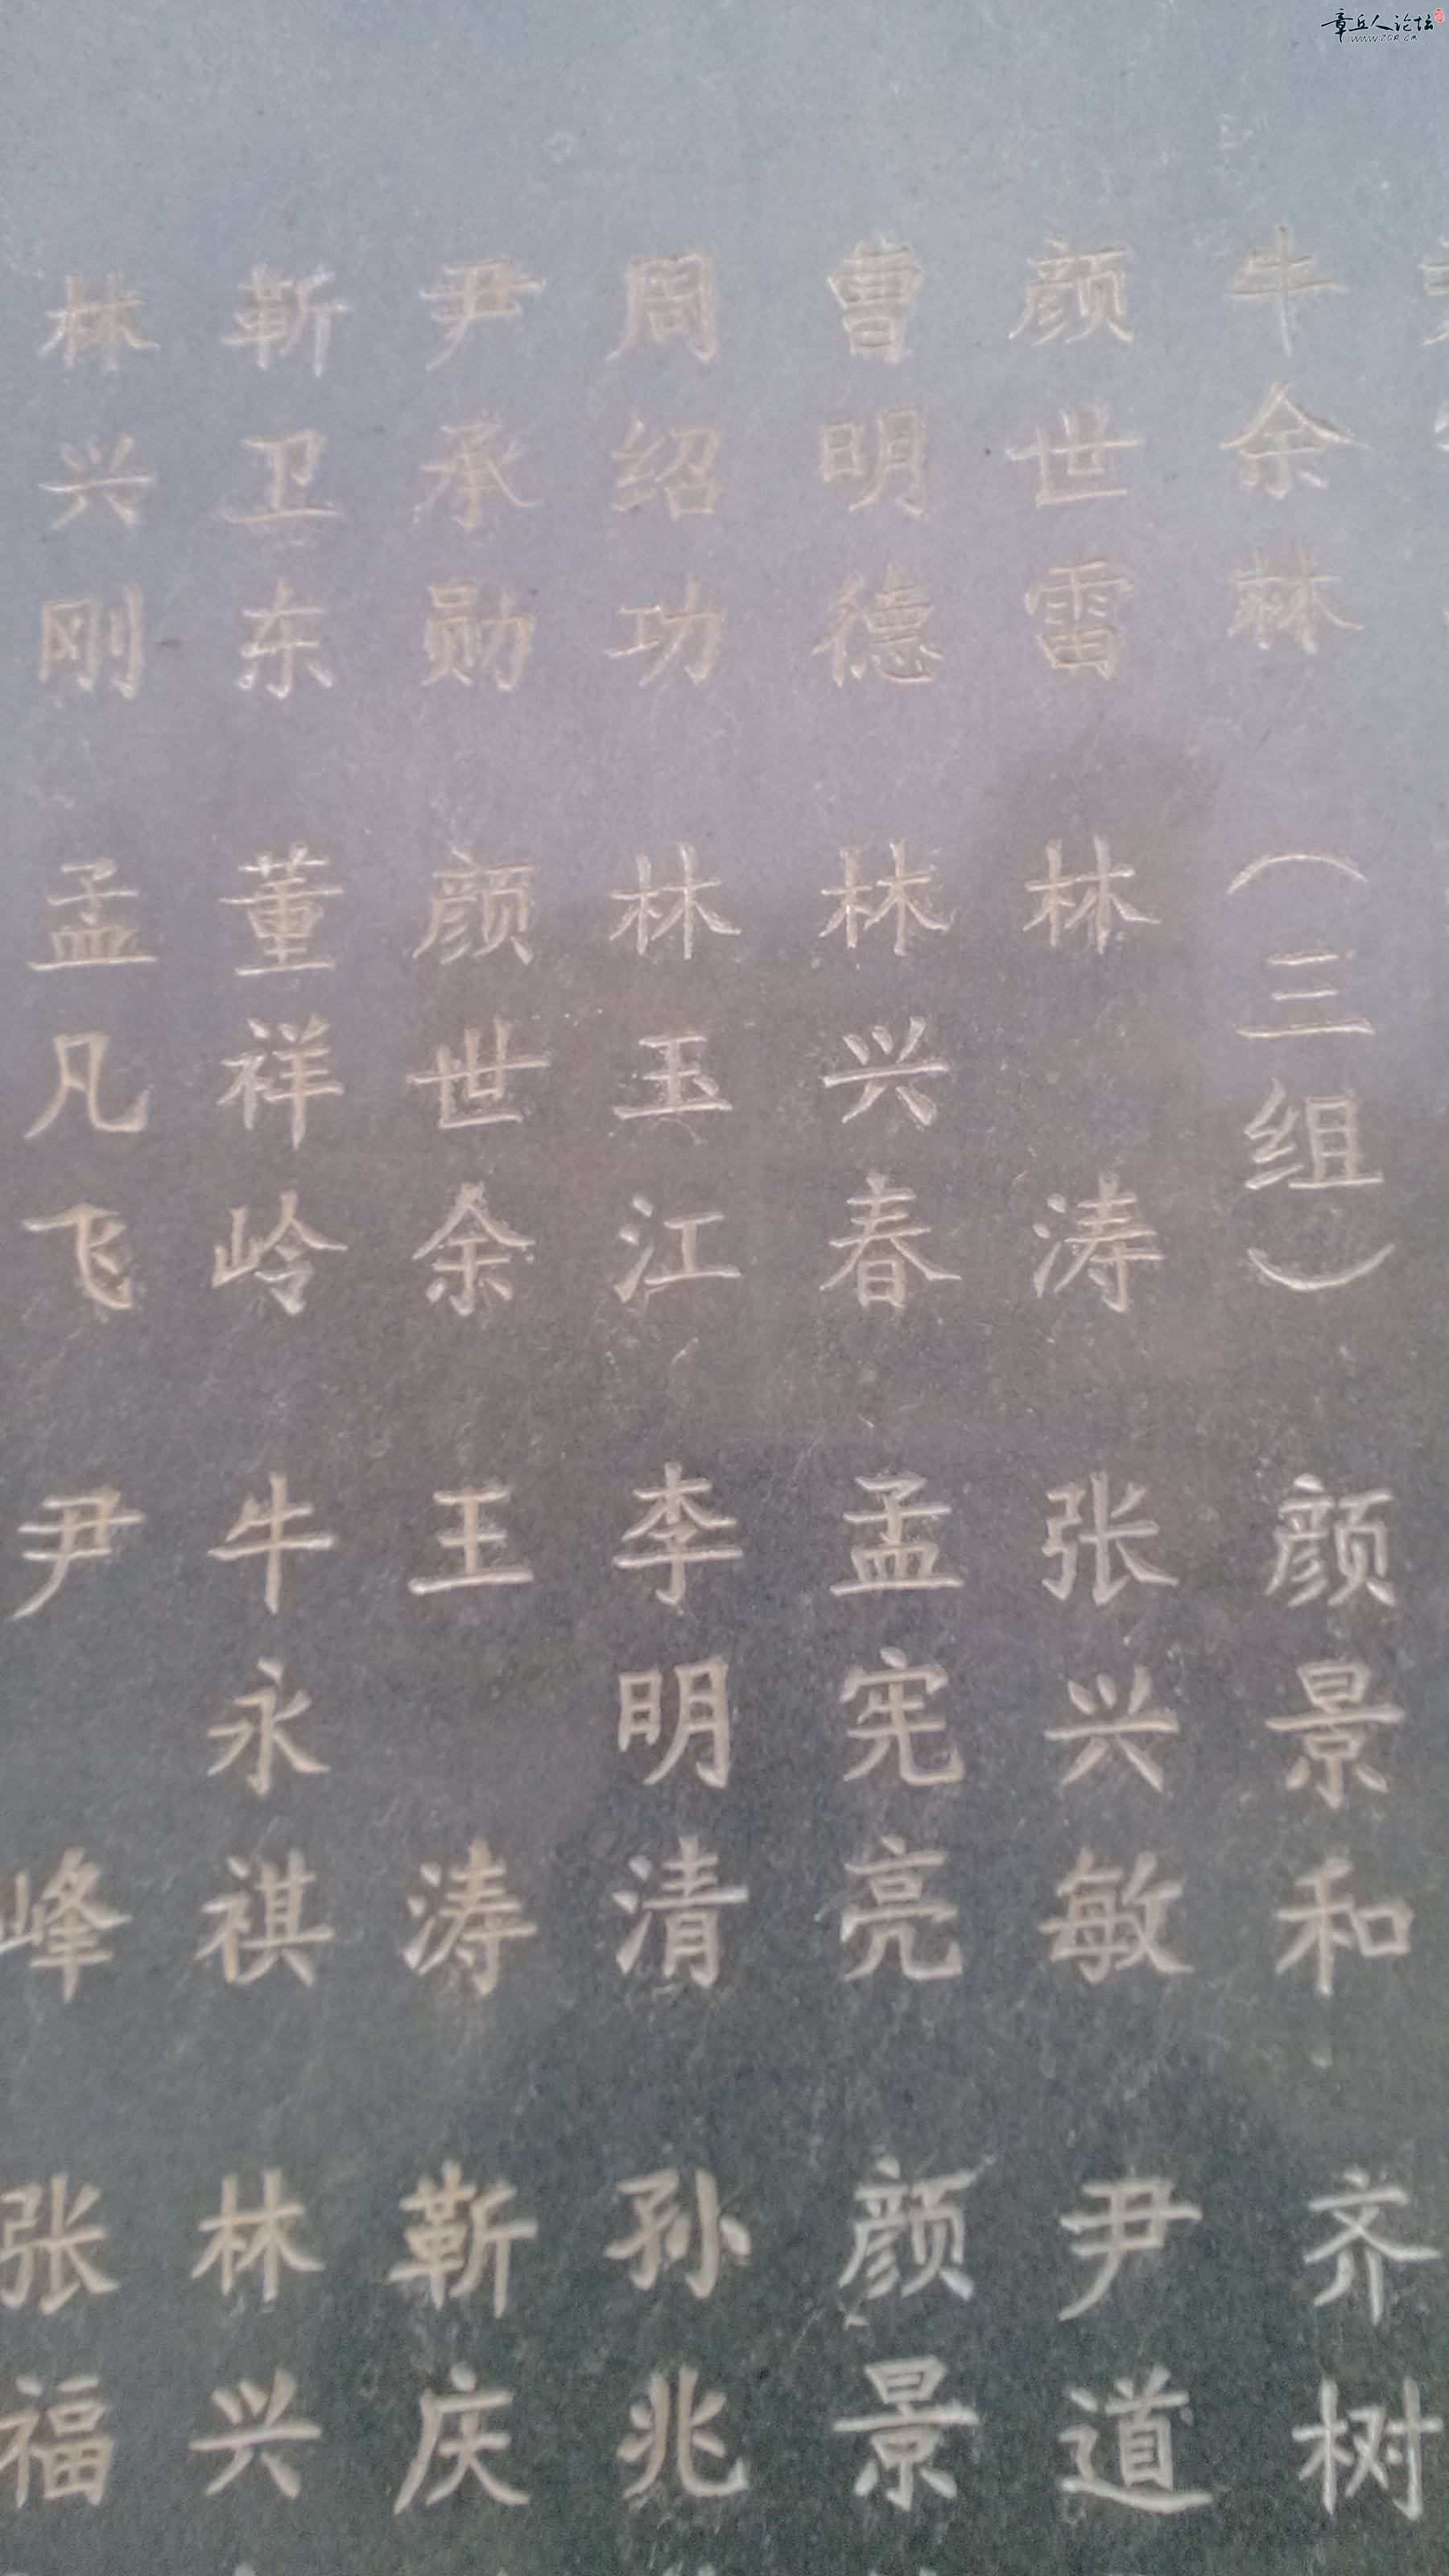 章丘人论坛
WWW.ZQR.CN
牛余林 （三组） 颜景和 齐树
颜世雷 林涛 张兴敏 尹道
曹明德 林兴春 孟宪亮 颜景
周绍功 林玉江 李明清 孙兆
尹承勋 颜世余 王涛 靳庆
靳卫东 董祥岭 牛永祺 林兴
林兴刚 孟凡飞 尹峰 张福